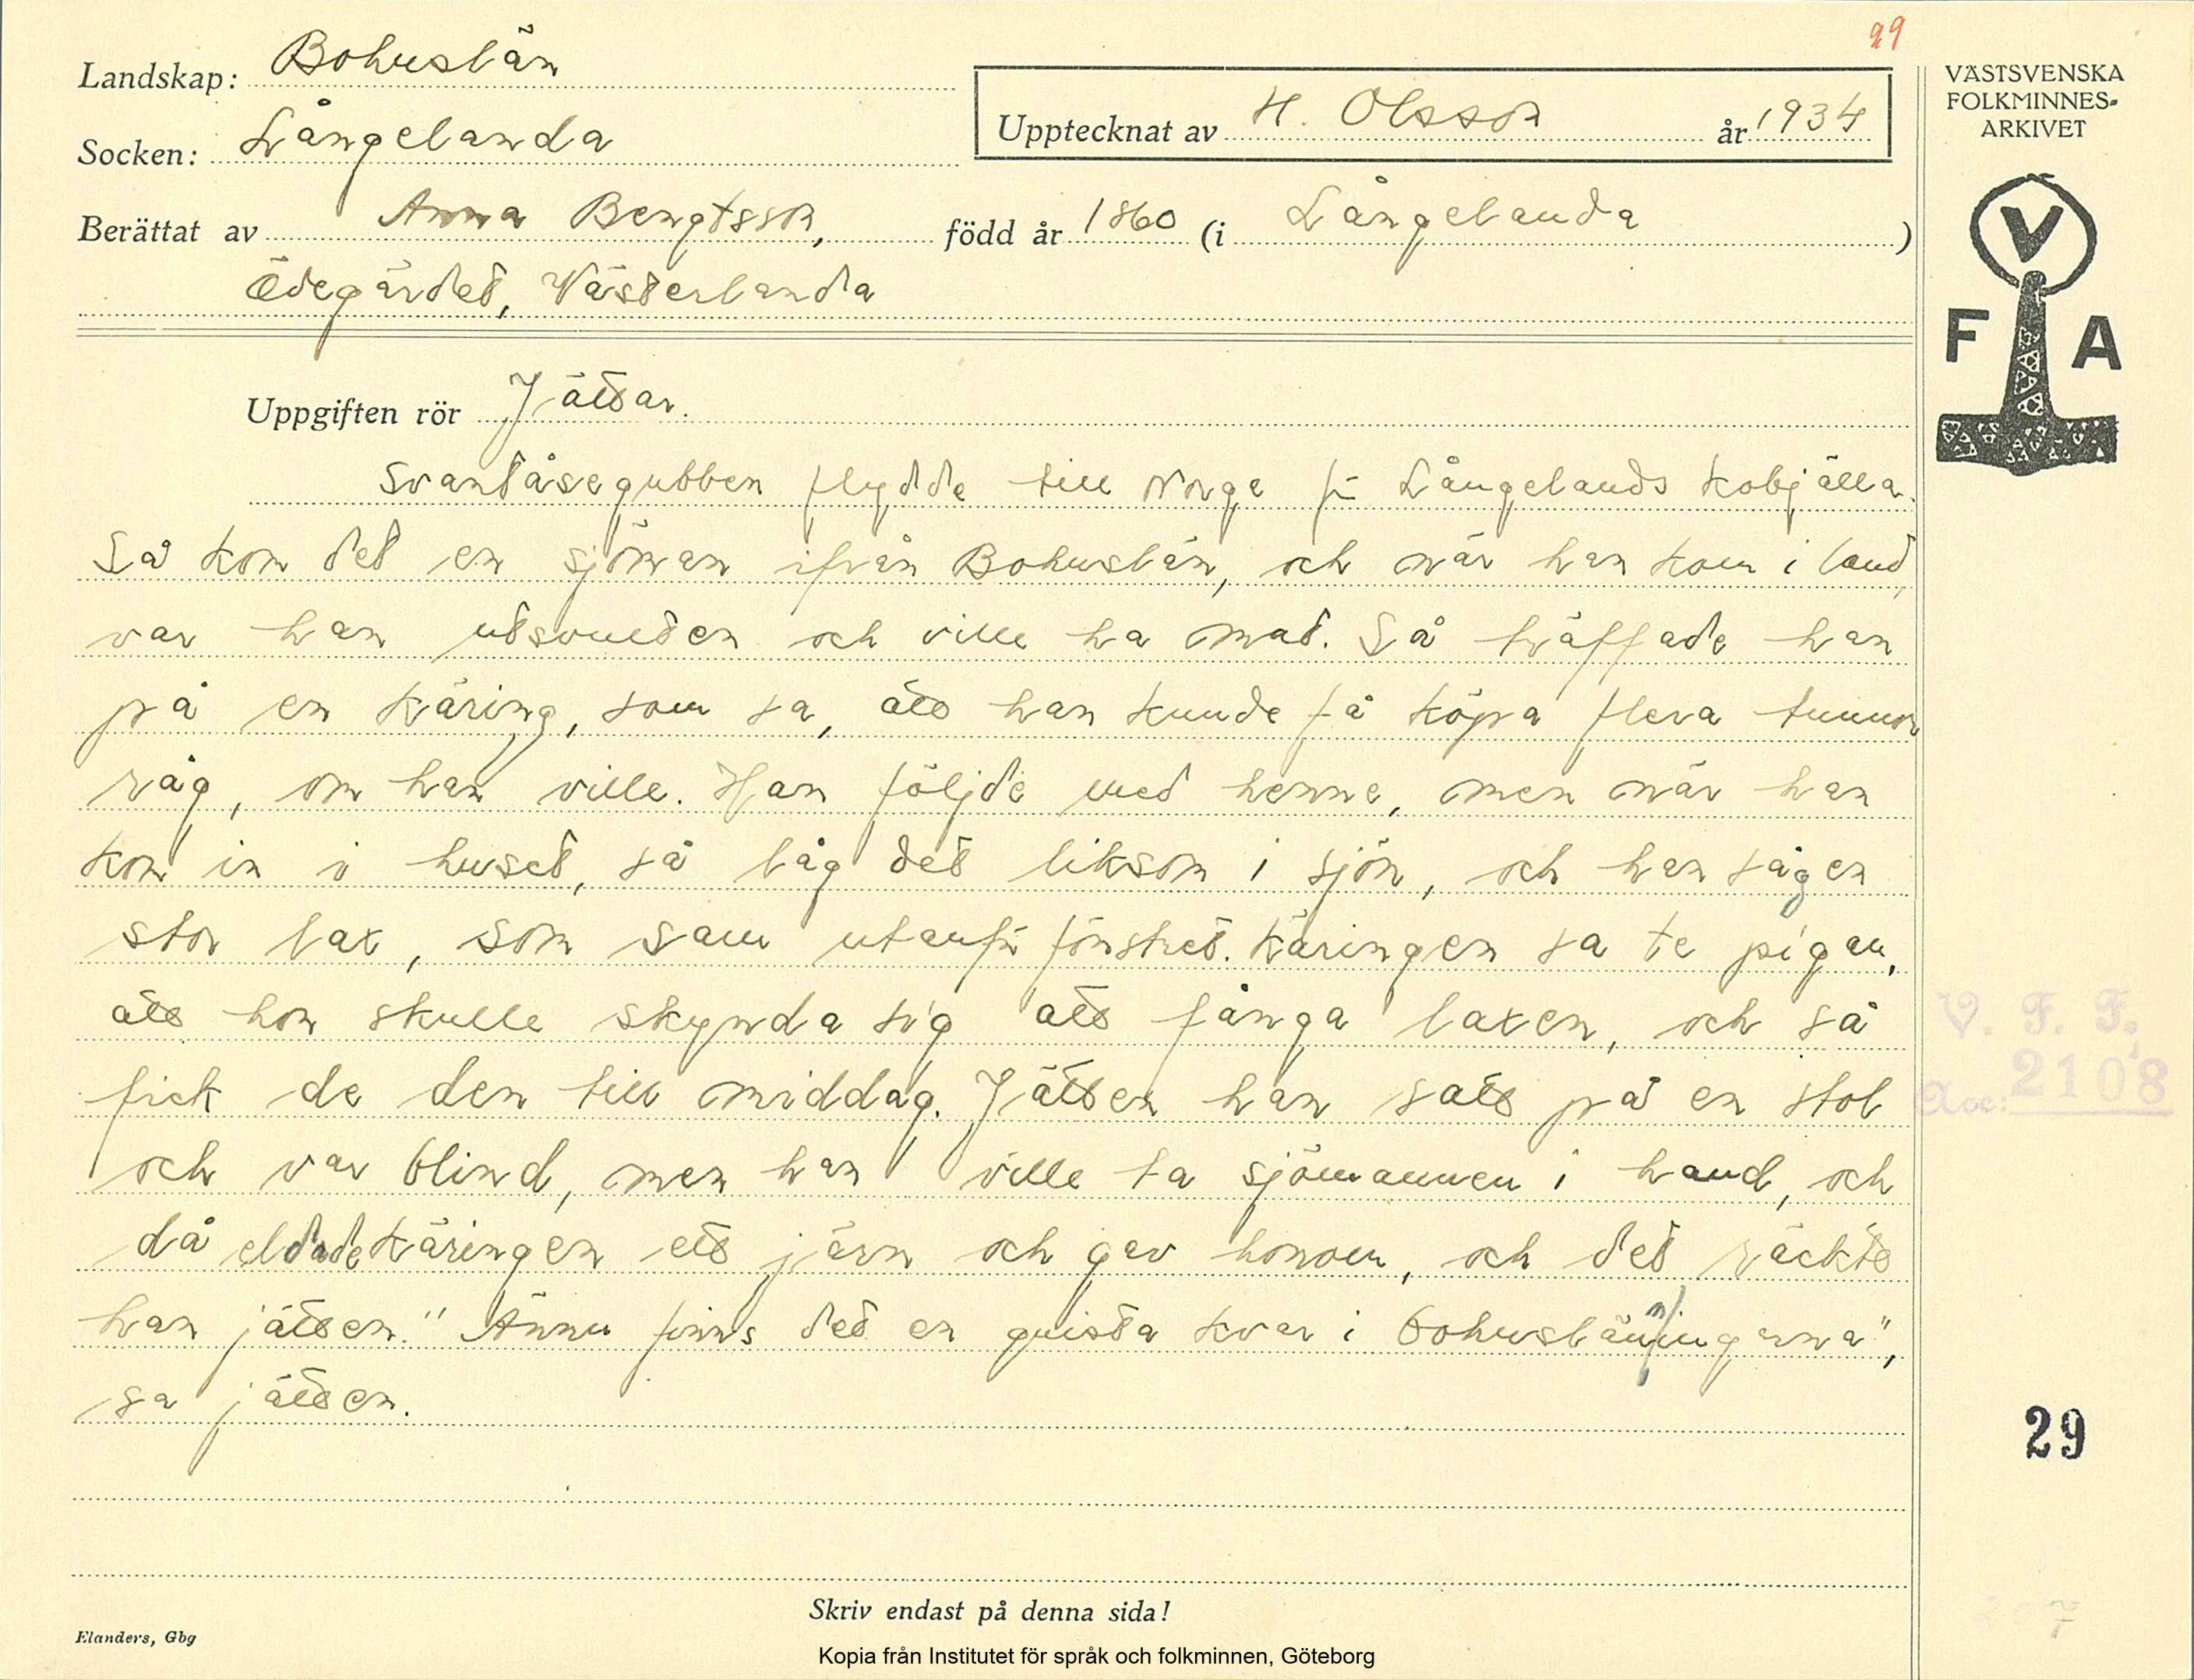 29
Landskap: Bohuslän
Socken: Långelanda
Upptecknat av H. Olsson år 1934
Berättat av Anna Bengtsson, född år 1860 (i Långelanda)
Ödegärdet, Västerlanda
VÄSTSVENSKA
FOLKMINNES-
ARKIVET
V
F A
Uppgiften rör Jättar.
Svartåsegubben flydde till Norge fr Långelands kobjälla.
Så kom det en sjöman ifrån Bohuslän, och när han kom i land,
var han utsvulten och ville ha mat. Så träffade han
på en käring, som sa, att han kunde få köpa flera tunnor
råg, om han ville. Han följde med henne, men när han
kom in i huset, så låg det liksom i sjön, och han såg en
stor lax, som sam utanför fönstret. Käringen sa te pigan,
att hon skulle skynda sig att fånga laxen, och så
fick de den till middag. Jätten han satt på en stol
och var blind, men han ville ta sjömannen i hand, och
då eldade käringen ett järn och gav honom, och det räckte
han jätten. "Ännu finns det en gnista kvar i bohuslänningarna",
sa jätten.
V. F. F.
Acc: 2108
29
Skriv endast på denna sida!
Elanders, Gbg
Kopia från Institutet för språk och folkminnen, Göteborg